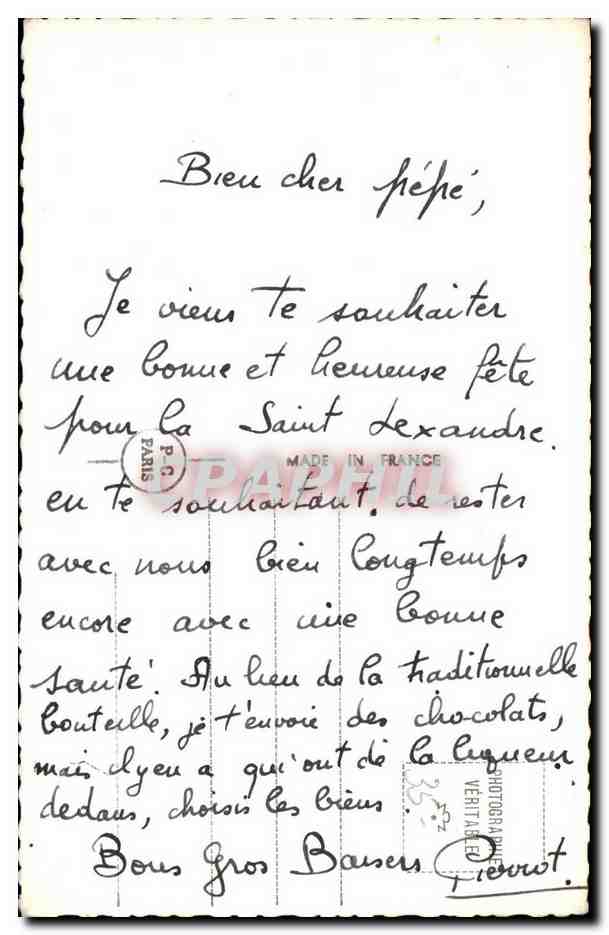 Bien cher pépé,
Je viens te souhaiter
une bonne et heureuse fête
pour la Saint Lexandre.
P-C
PARIS
MADE IN FRANCE
CPAPHIL
en te souhaitant. de rester
avec nous bien longtemps
encore avec une bonne
santé. Au lieu de la traditionnelle
bouteille, je t'envoie des chocolats,
mais il y en a qui ont de la liqueur
dedans, choisis les biens.
PHOTOGRAPHIE
VÉRITABLE
35
Bons Gros Baisers Pierrot.